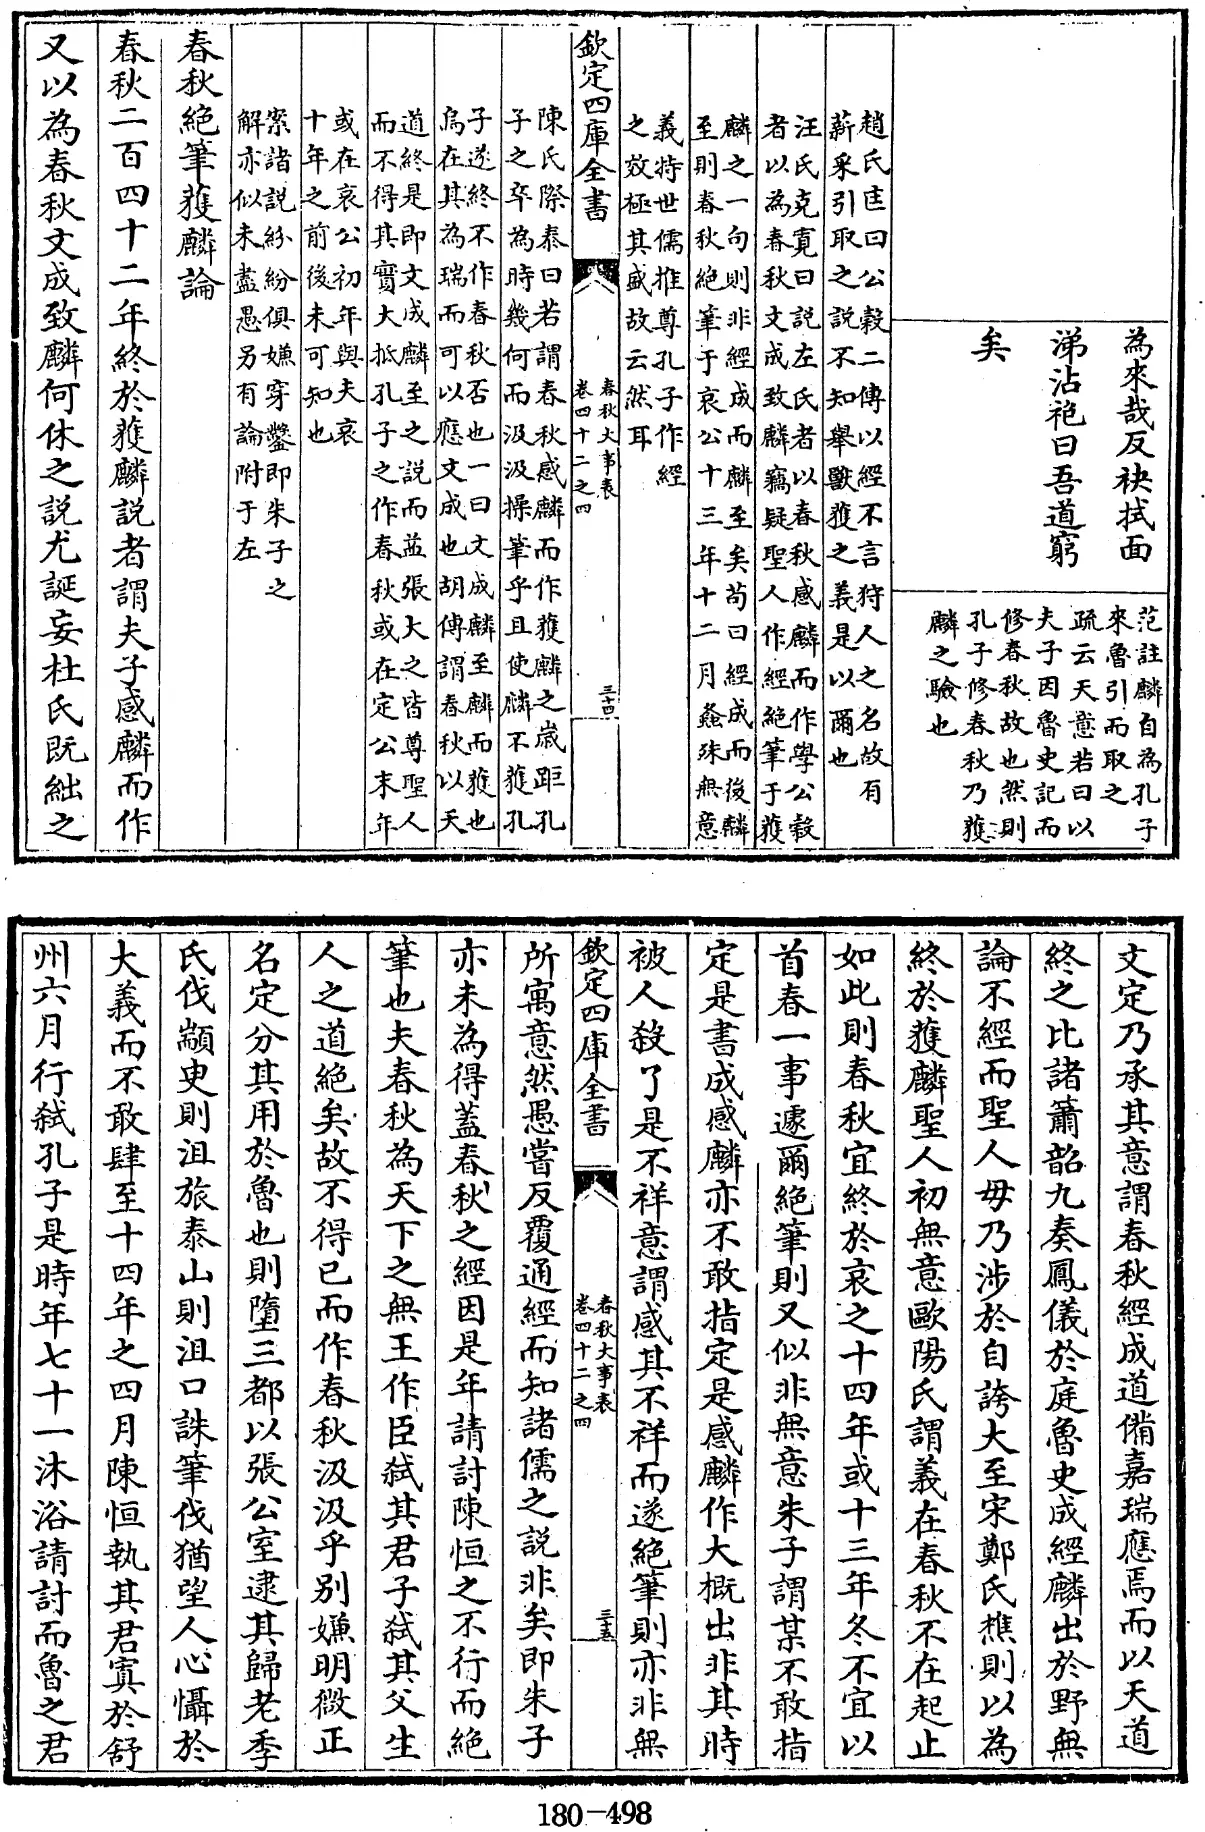 為來哉反袂拭面
涕沾袍曰吾道窮
矣
范註麟自為孔子
來魯引而取之
疏云天意若曰以
夫子因魯史記而
修春秋故也然則
孔子修春秋乃獲
麟之驗也
趙氏匡曰公穀二傳以經不言狩人之名故有
薪采引取之説不知舉獸獲之義是以爾也
汪氏克寛曰説左氏者以春秋感麟而作學公穀
者以為春秋文成致麟竊疑聖人作經絶筆于獲
麟之一句則非經成而麟至矣苟曰經成而後麟
至則春秋絶筆于哀公十三年十二月螽殊無意
義特世儒推尊孔子作經
之效極其盛故云然耳
欽定四庫全書
春秋大事表
卷四十二之四
三十四
陳氏際泰曰若謂春秋感麟而作獲麟之歲距孔
子之卒為時幾何而汲汲操筆乎且使麟不獲孔
子遂終不作春秋否也一曰文成麟至麟而獲也
烏在其為瑞而可以應文成也胡傳謂春秋以天
道終是即文成麟至之説而益張大之皆尊聖人
而不得其實大抵孔子之作春秋或在定公末年
或在哀公初年與夫哀
十年之前後未可知也
案諸説紛紛俱嫌穿鑿即朱子之
解亦似未盡愚另有論附于左
春秋絶筆獲麟論
春秋二百四十二年終於獲麟説者謂夫子感麟而作
又以為春秋文成致麟何休之説尤誕妄杜氏既絀之
文定乃承其意謂春秋經成道備嘉瑞應焉而以天道
終之比諸簫韶九奏鳳儀於庭魯史成經麟出於野無
論不經而聖人毋乃涉於自誇大至宋鄭氏樵則以為
終於獲麟聖人初無意歐陽氏謂義在春秋不在起止
如此則春秋宜終於哀之十四年或十三年冬不宜以
首春一事遽爾絶筆則又似非無意朱子謂某不敢指
定是書成感麟亦不敢指定是感麟作大概出非其時
被人殺了是不祥意謂感其不祥而遂絶筆則亦非無
欽定四庫全書
春秋大事表
卷四十二之四
三十五
所寓意然愚嘗反覆通經而知諸儒之説非矣即朱子
亦未為得蓋春秋之經因是年請討陳恒之不行而絶
筆也夫春秋為天下之無王作臣弑其君子弑其父生
人之道絶矣故不得已而作春秋汲汲乎別嫌明微正
名定分其用於魯也則墮三都以張公室逮其歸老季
氏伐顓臾則沮旅泰山則沮口誅筆伐猶望人心懾於
大義而不敢肆至十四年之四月陳恒執其君寘於舒
州六月行弑孔子是時年七十一沐浴請討而魯之君
180-498